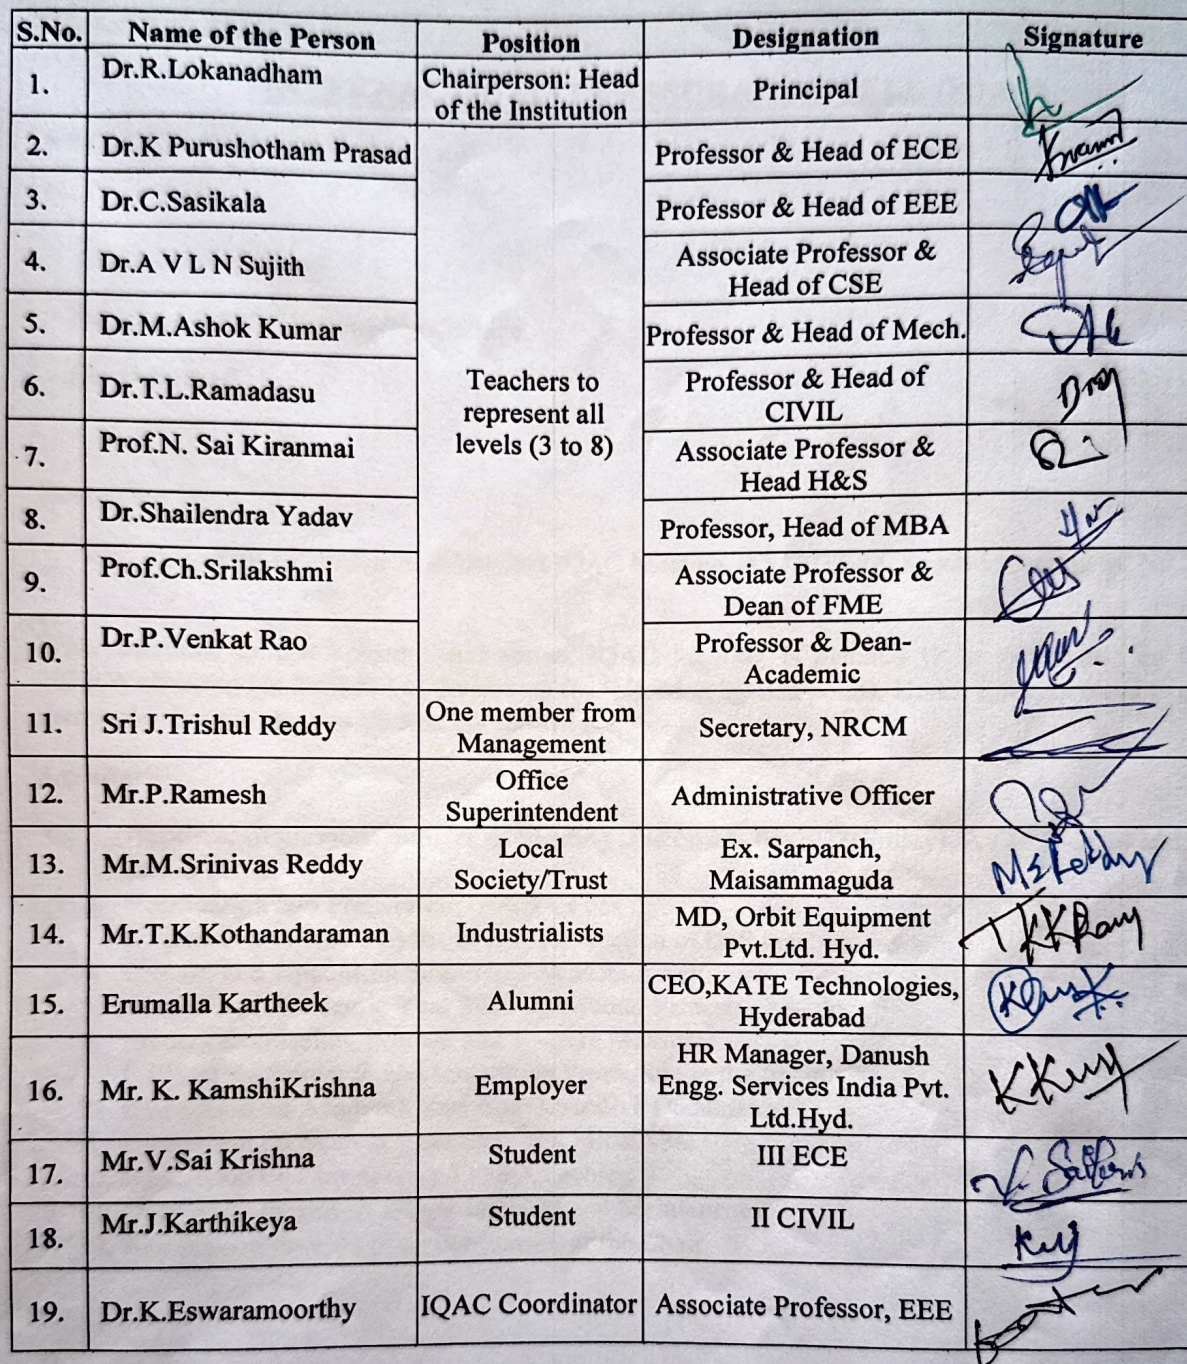 S.No. Name of the Person Position Designation Signature
1. Dr.R.Lokanadham Chairperson: Head Principal
of the Institution
2. Dr.K Purushotham Prasad Professor & Head of ECE
3. Dr.C.Sasikala Professor & Head of EEE
4. Dr.A V L N Sujith Associate Professor &
Head of CSE
5. Dr.M.Ashok Kumar Professor & Head of Mech.
6. Dr.T.L.Ramadasu Teachers to Professor & Head of
represent all CIVIL
7. Prof.N. Sai Kiranmai levels (3 to 8) Associate Professor &
Head H&S
8. Dr.Shailendra Yadav Professor, Head of MBA
9. Prof.Ch.Srilakshmi Associate Professor &
Dean of FME
10. Dr.P.Venkat Rao Professor & Dean-
Academic
11. Sri J.Trishul Reddy One member from Secretary, NRCM
Management
12. Mr.P.Ramesh Office Administrative Officer
Superintendent
13. Mr.M.Srinivas Reddy Local Ex. Sarpanch, MSReddy
Society/Trust Maisammaguda
14. Mr.T.K.Kothandaraman Industrialists MD, Orbit Equipment
Pvt.Ltd. Hyd.
15. Erumalla Kartheek Alumni CEO,KATE Technologies,
Hyderabad
16. Mr. K. KamshiKrishna Employer HR Manager, Danush
Engg. Services India Pvt.
Ltd.Hyd.
17. Mr.V.Sai Krishna Student III ECE
18. Mr.J.Karthikeya Student II CIVIL
19. Dr.K.Eswaramoorthy IQAC Coordinator Associate Professor, EEE